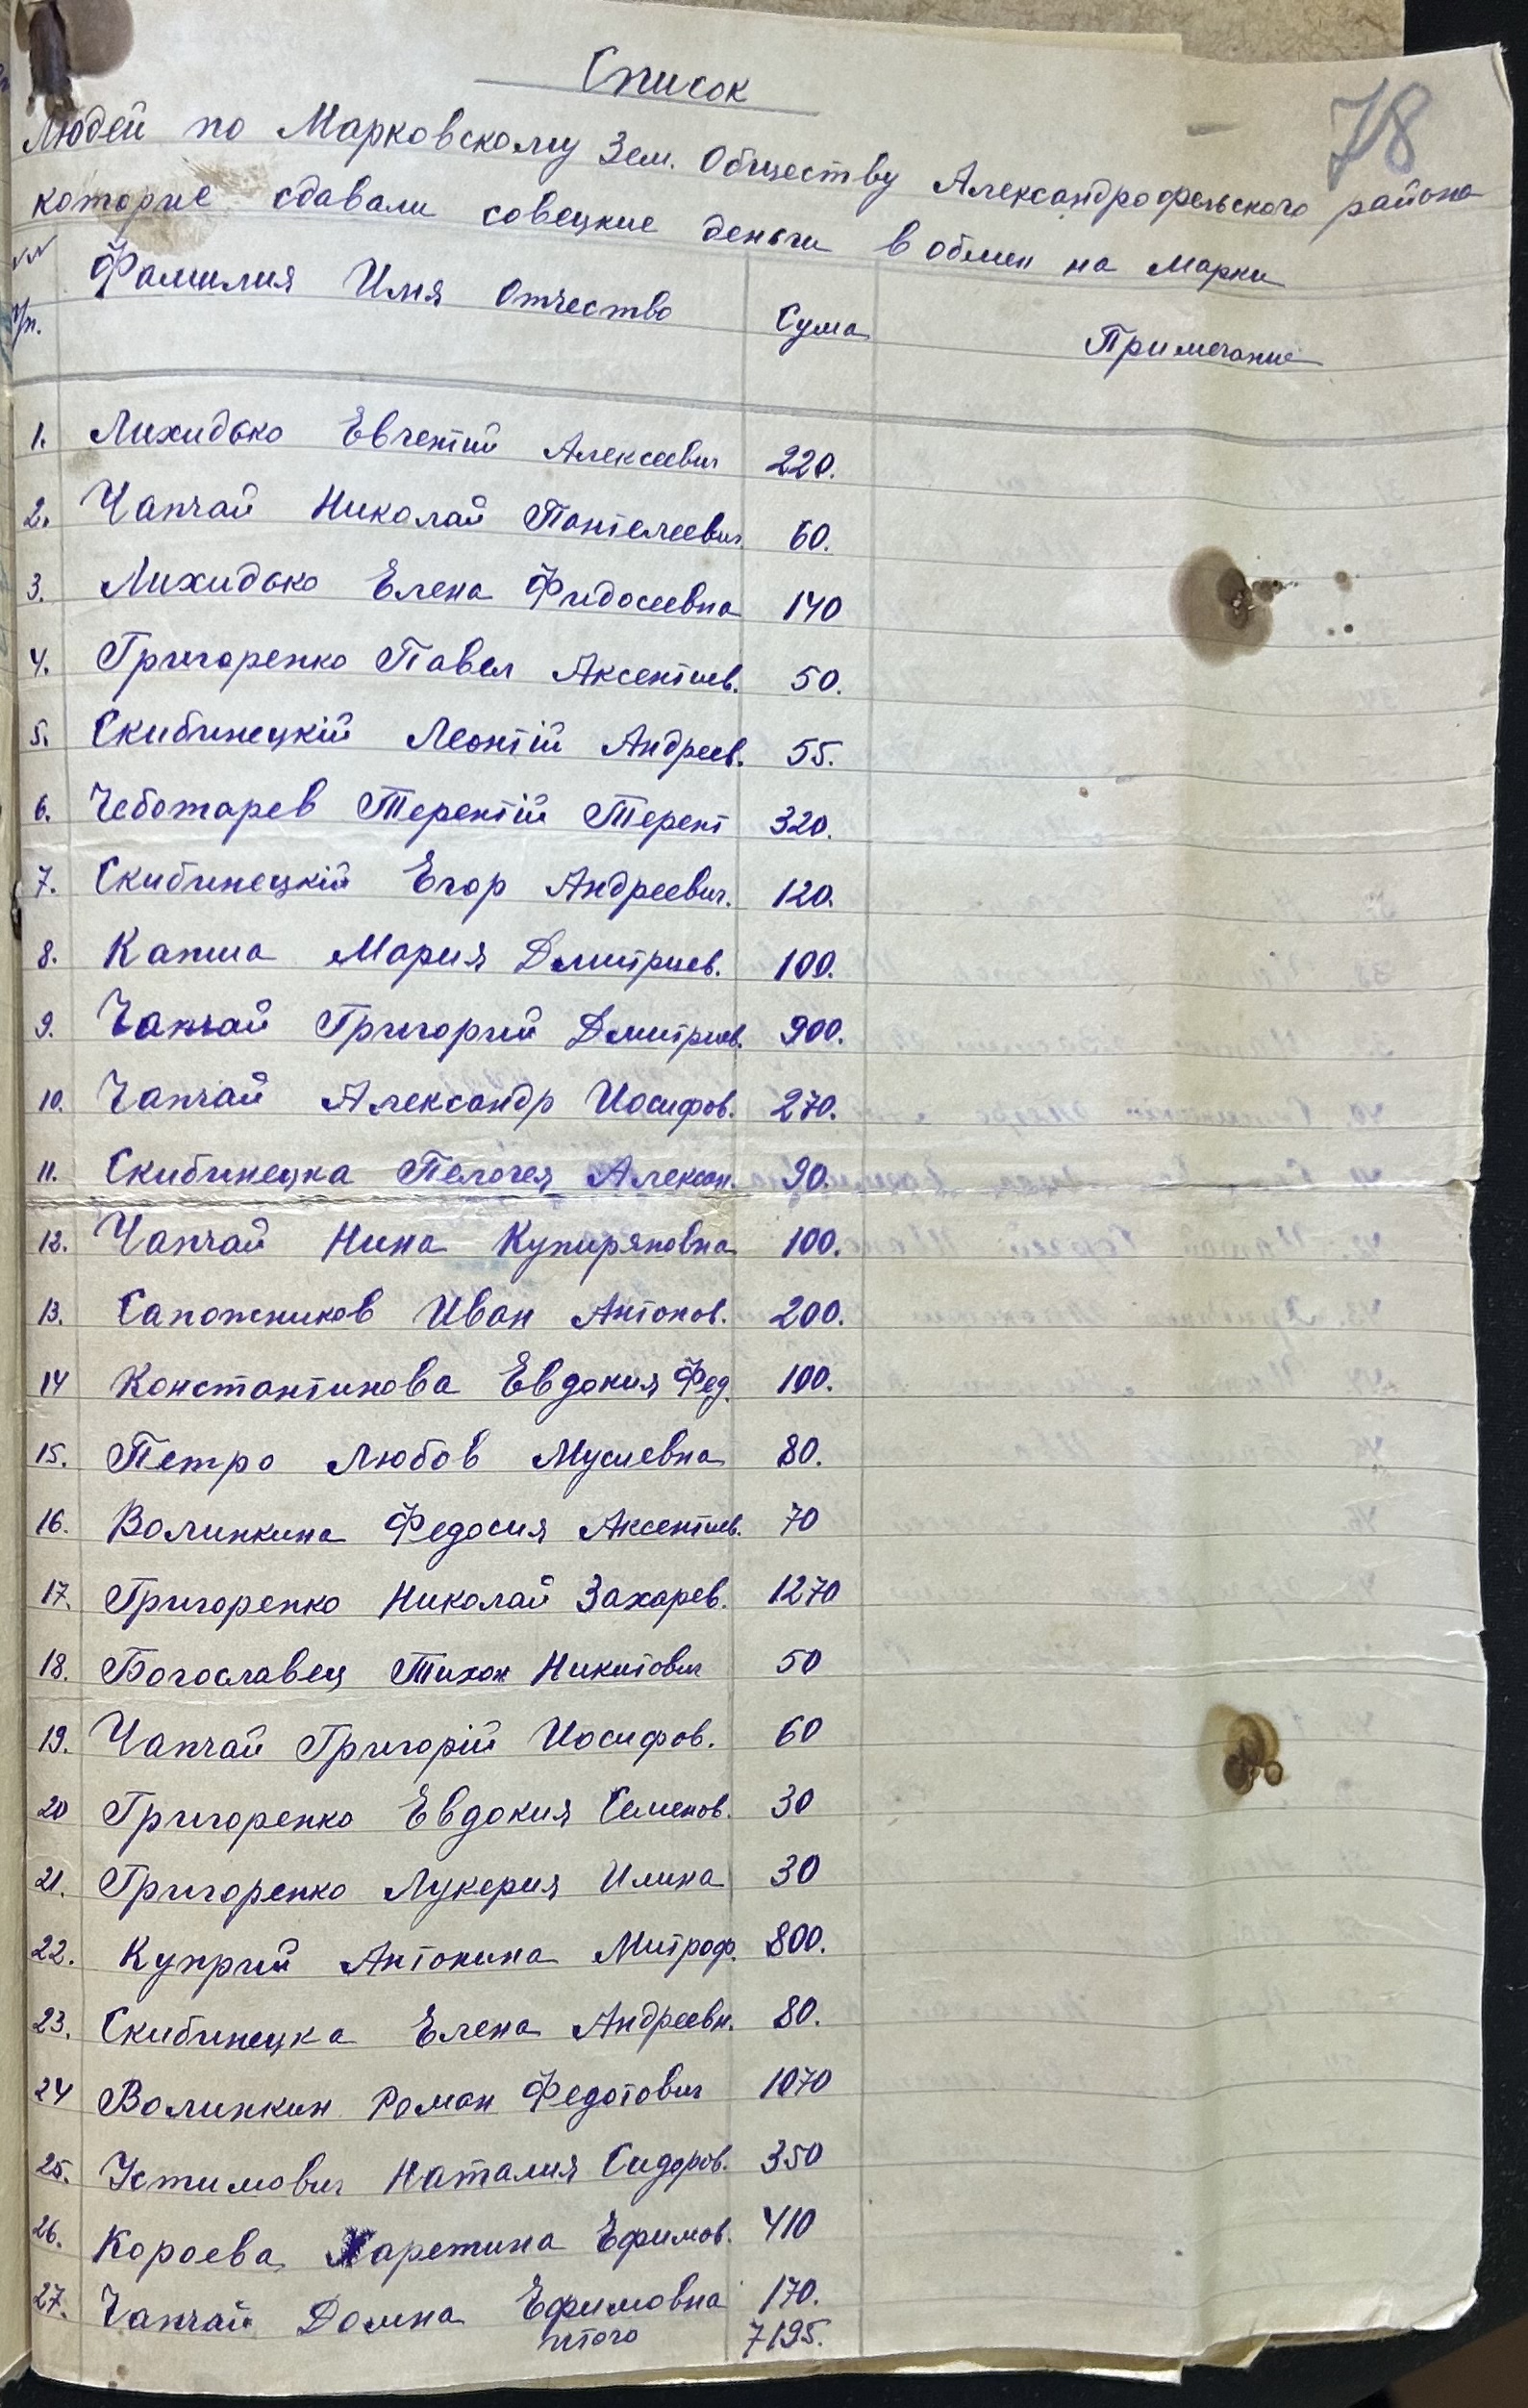 78
Список
Людей по Марковскому Зем. Обществу Александрофельского района
которые сдавали совецкие деньги в обмен на марки
№№ п/п. Фамилия Имя Отчество Сума Примечание
1. Лихидько Евгений Алексеевич 220.
2. Чапчай Николай Пантелеевич 60.
3. Лихидько Елена Фидосеевна 140
4. Григоренко Павел Аксентиев. 50.
5. Скибинецкій Леонтій Андреев. 55.
6. Чеботарев Терентій Терент 320.
7. Скибинецкій Егор Андреевич. 120.
8. Капша Мария Дмитриев. 100.
9. Чапчай Григорий Дмитриев. 900.
10. Чапчай Александр Иосифов. 270.
11. Скибинецка Пелогея Алексан. 90.
12. Чапчай Нина Куприяновна 100.
13. Сапожников Иван Антонов. 200.
14 Константинова Евдокия Фед. 100.
15. Петро Любов Мусиевна 80.
16. Волинкина Федосия Аксентиев. 70
17. Григоренко Николай Захарев. 1270
18. Богославец Тихон Никитович 50
19. Чапчай Григорій Иосифов. 60
20 Григоренко Евдокия Семенов. 30
21. Григоренко Лукерия Илина 30
22. Куприй Антонина Митроф. 800.
23. Скибинецка Елена Андреевн. 80.
24 Волинкин Роман Федотович 1070
25. Устимович Наталия Сидоров. 350
26. Короева Харетина Ефимов. 410
27. Чапчай Домна Ефимовна 170.
итого 7195.